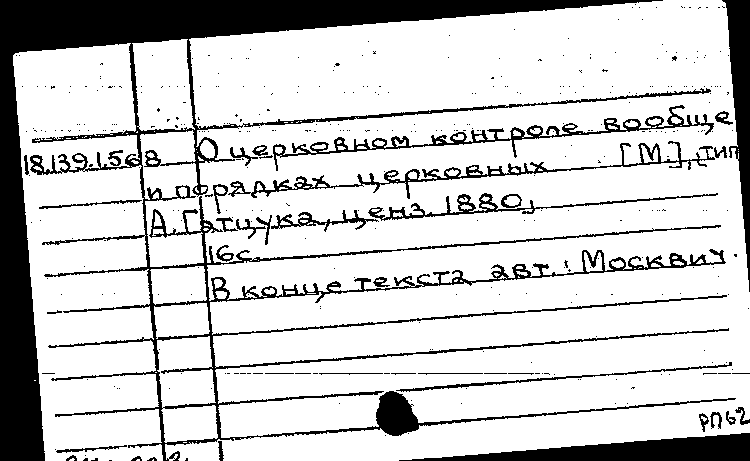 18.139.1.568 О церковном контроле вообще
и порядках церковных [М.], тип
А. Гатцука, ценз. 1880,
16с.
В конце текста авт.: Москвич.
РП62